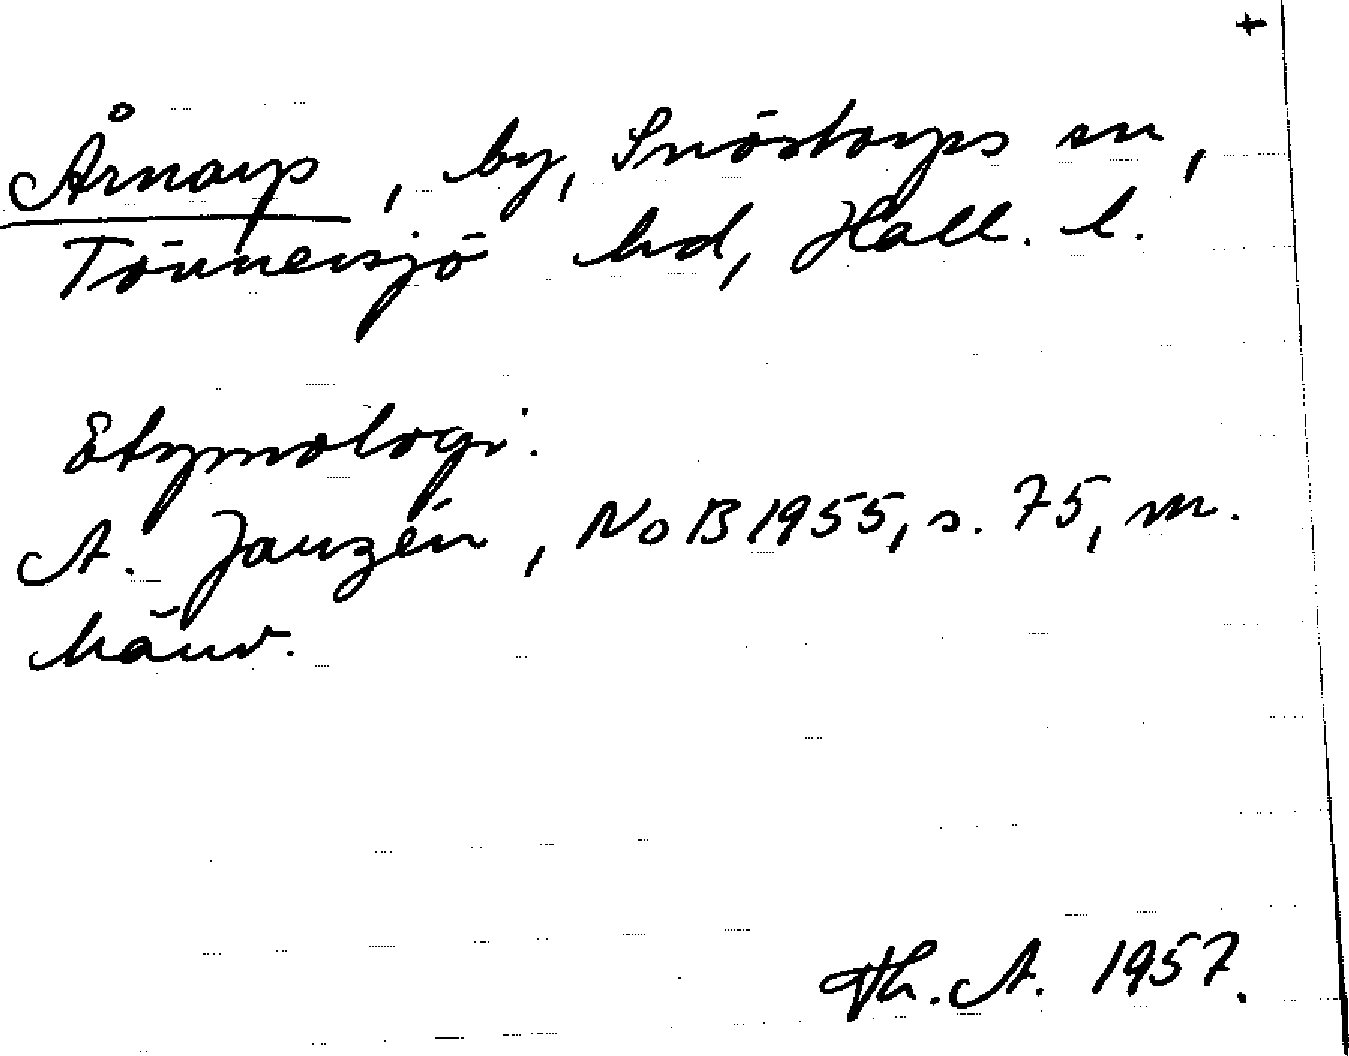 +
Årnarp, by, Snöstorps sn,
Tönnersjö hd, Hall. l.
Etymologi:
A. Janzén, NoB 1955, s. 75, m.
hänv.
Th. A. 1957.